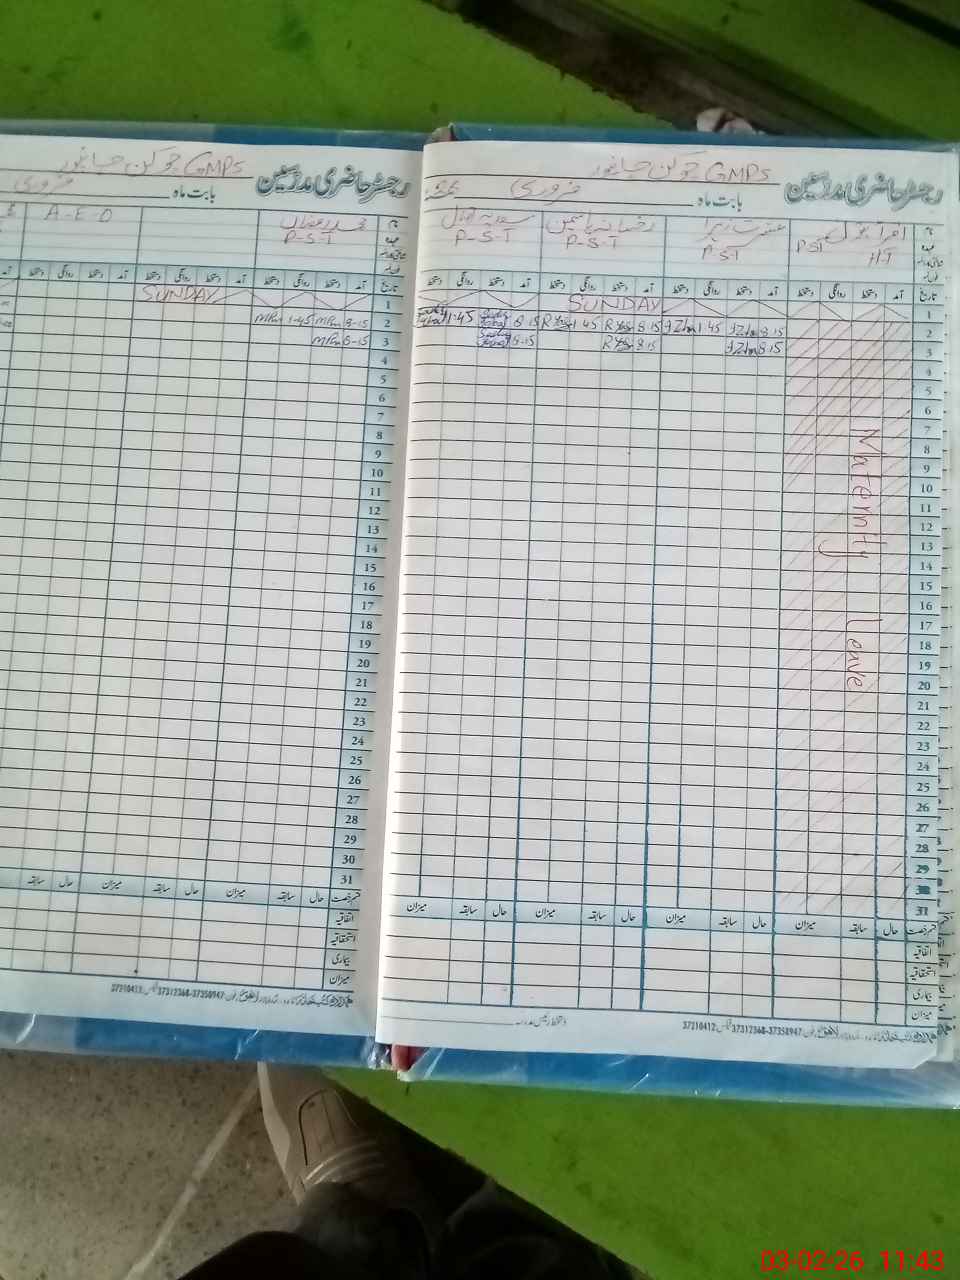 GMPS چوکن حیانپور
رجسٹر حاضری مدرسین
بابت ماہ فروری
نام
عہدہ
P-S-T
A-E-O
تاریخ آمد دستخط روانگی دستخط آمد دستخط روانگی دستخط آمد دستخط روانگی دستخط آمد
1 SUNDAY
2 8-15 MRm 1-45 MRm
3 8-15 MRm
4
5
6
7
8
9
10
11
12
13
14
15
16
17
18
19
20
21
22
23
24
25
26
27
28
29
30
31
قسم رخصت حال سابقہ میزان حال سابقہ میزان حال سابقہ
اتفاقیہ
استحقاقیہ
بیماری
میزان
37210413 37312368-37358947
GMPS چوکن حیانپور
رجسٹر حاضری مدرسین
بابت ماہ فروری
نام
عہدہ
HT PST
عشرت زہرا P-S-T
رخسانہ یاسمین P-S-T
سعدیہ اقبال P-S-T
تاریخ آمد دستخط روانگی دستخط آمد دستخط روانگی دستخط آمد دستخط روانگی دستخط آمد دستخط روانگی دستخط
1 SUNDAY
2 8.15 1.45 8.15 1.45 8.15 Sadia Iqbal 1.45 Sadia Iqbal
3 8.15 8.15 8.15 Sadia Iqbal
4
5
6
7
8
9
10
11
12
13
14
15
16
17
18
19
20
21
22
23
24
25
26
27
28
29
30
31
Maternity leave
قسم رخصت حال سابقہ میزان حال سابقہ میزان حال سابقہ میزان حال سابقہ میزان
اتفاقیہ
استحقاقیہ
بیماری
میزان
دستخط رئیس مدرسہ
37210412 37312368-37358947
03-02-26 11:43